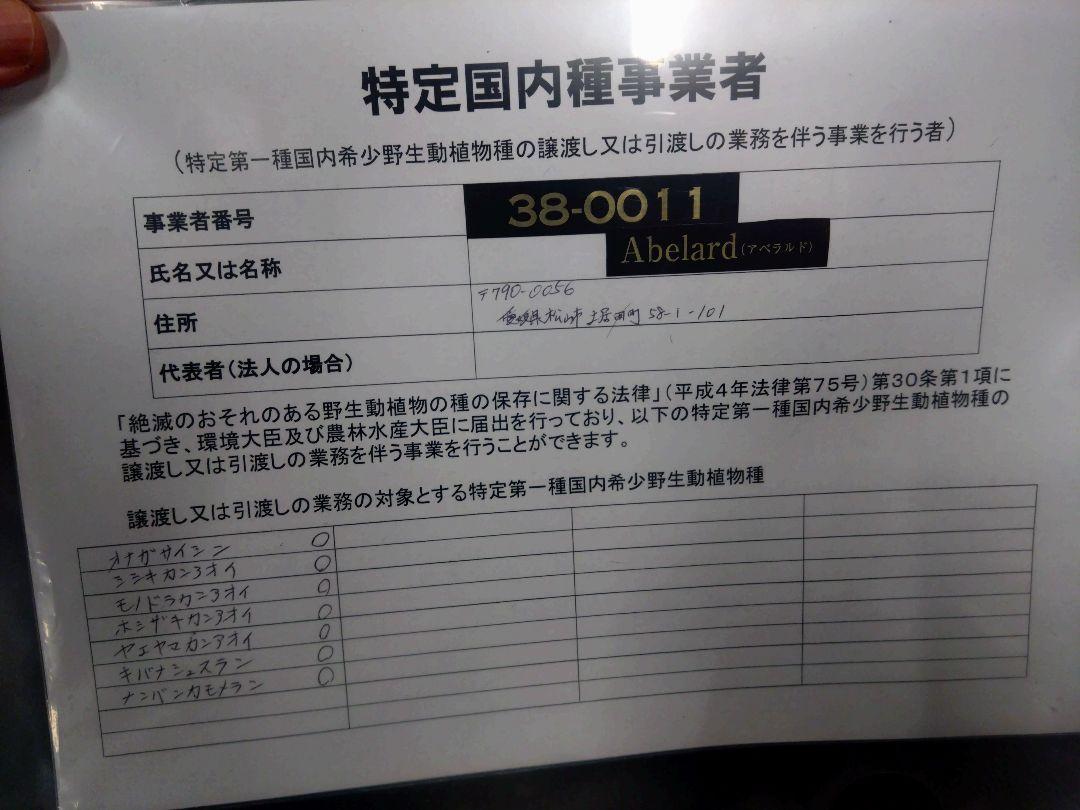 特定国内種事業者
（特定第一種国内希少野生動植物種の譲渡し又は引渡しの業務を伴う事業を行う者）
事業者番号 38-0011
氏名又は名称 Abelard(アベラルド)
住所 〒790-0056
愛媛県松山市土居田町58-1-101
代表者（法人の場合）
「絶滅のおそれのある野生動植物の種の保存に関する法律」（平成４年法律第75号）第30条第１項に
基づき、環境大臣及び農林水産大臣に届出を行っており、以下の特定第一種国内希少野生動植物種の
譲渡し又は引渡しの業務を伴う事業を行うことができます。
譲渡し又は引渡しの業務の対象とする特定第一種国内希少野生動植物種
オナガサイシン ○
シシキカンアオイ ○
モノドラカンアオイ ○
ホシザキカンアオイ ○
ヤエヤマカンアオイ ○
キバナシュスラン ○
ナンバンカモメラン ○